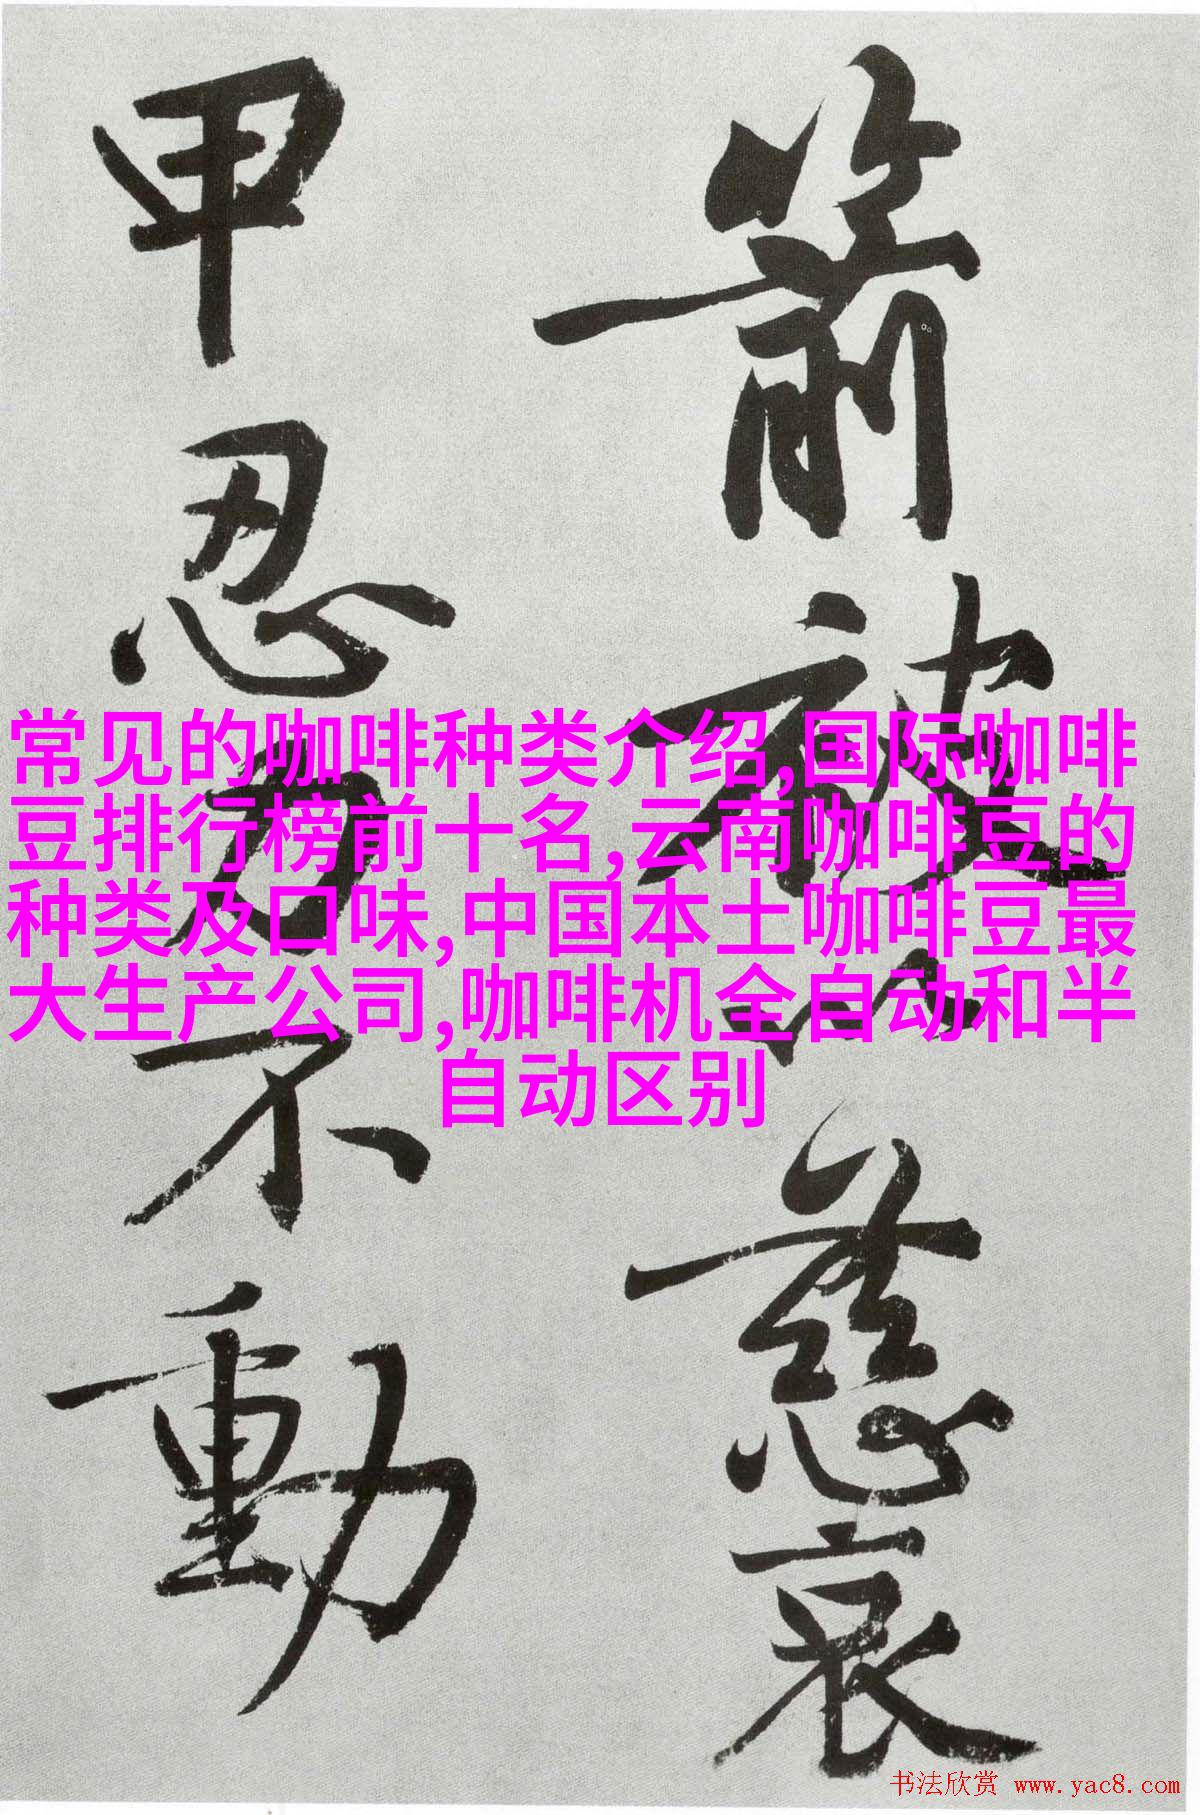 箭被以慈哀
甲忍力不動
常见的咖啡种类介绍,国际咖啡
豆排行榜前十名,云南咖啡豆的
种类及口味,中国本土咖啡豆最
大生产公司,咖啡机全自动和半
自动区别
书法欣赏 www.yac8.com